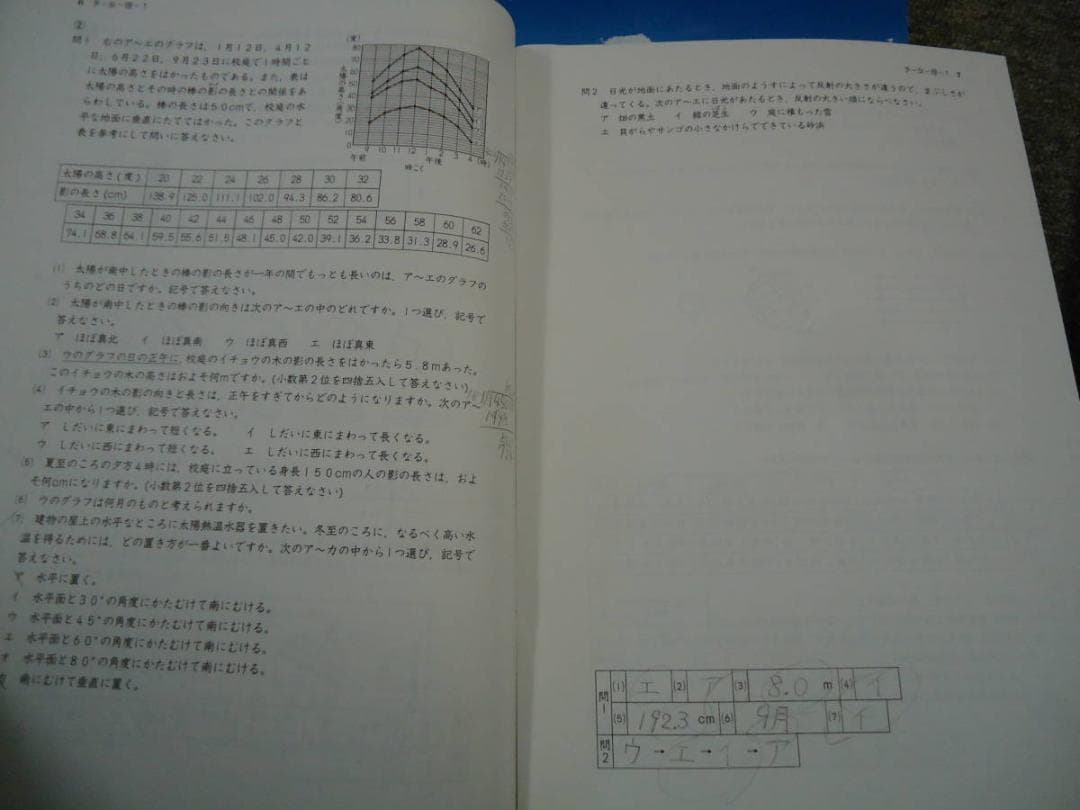 ②
問1 右のア〜エのグラフは，1月12日，4月12
日，6月22日，9月23日に校庭で1時間ごと
に太陽の高さをはかったものである。また，表は
太陽の高さとその時の棒の影の長さとの関係をあ
らわしている。棒の長さは50cmで，校庭の水
平な地面に垂直にたててはかった。このグラフと
表を参考にして問いに答えなさい。
(度)
太陽の高さ(度)
80
70
60
50
40
30
20
10
0
9 10 11 12 1 2 3 4 (時)
午前 午後
時こく
太陽の高さ(度) 20 22 24 26 28 30 32
影の長さ(cm) 138.9 125.0 111.1 102.0 94.3 86.2 80.6
34 36 38 40 42 44 46 48 50 52 54 56 58 60 62
74.1 68.8 64.1 59.5 55.6 51.5 48.1 45.0 42.0 39.1 36.2 33.8 31.3 28.9 26.6
(1) 太陽が南中したときの棒の影の長さが一年の間でもっとも長いのは，ア〜エのグラフの
うちのどの日ですか。記号で答えなさい。
(2) 太陽が南中したときの棒の影の向きは次のア〜エの中のどれですか。1つ選び，記号で
答えなさい。
ア ほぼ真北 イ ほぼ真南 ウ ほぼ真西 エ ほぼ真東
(3) ウのグラフの日の正午に，校庭のイチョウの木の影の長さをはかったら5.8mあった。
このイチョウの木の高さはおよそ何mですか。(小数第2位を四捨五入して答えなさい)
(4) イチョウの木の影の向きと長さは，正午をすぎてからどのようになりますか。次のア〜
エの中から1つ選び，記号で答えなさい。
ア しだいに東にまわって短くなる。 イ しだいに東にまわって長くなる。
ウ しだいに西にまわって短くなる。 エ しだいに西にまわって長くなる。
(5) 夏至のころの夕方4時には，校庭に立っている身長150cmの人の影の長さは，およ
そ何cmになりますか。(小数第2位を四捨五入して答えなさい)
(6) ウのグラフは何月のものと考えられますか。
(7) 建物の屋上の水平なところに太陽熱温水器を置きたい。冬至のころに，なるべく高い水
温を得るためには，どの置き方が一番よいですか。次のア〜カの中から1つ選び，記号で
答えなさい。
ア 水平に置く。
イ 水平面と30°の角度にかたむけて南にむける。
ウ 水平面と45°の角度にかたむけて南にむける。
エ 水平面と60°の角度にかたむけて南にむける。
オ 水平面と80°の角度にかたむけて南にむける。
南にむけて垂直に置く。
問2 日光が地面にあたるとき，地面のようすによって反射の大きさが違うので，まぶしさが
違ってくる。次のア〜エに日光があたるとき，反射の大きい順にならべなさい。
ア 畑の黒土 イ 緑の芝生 ウ 庭に積もった雪
エ 貝がらやサンゴの小さなかけらでできている砂浜
問1 (1) エ (2) ア (3) 8.0 m (4) イ
(5) 192.3 cm (6) 9月 (7) イ
問2 ウ→エ→イ→ア